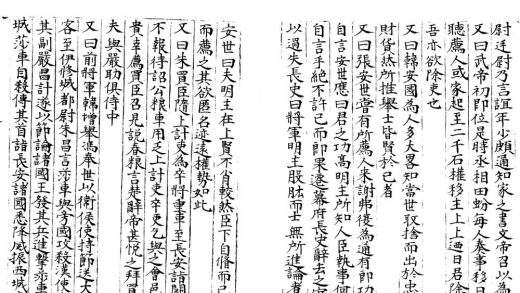 尉廷尉乃言誼年少頗通知家之書文帝召以為
又曰武帝初即位是時丞相田蚡每入奏事移日
聽薦人或家起至二千石權移主上上迺曰君除
吾亦欲除吏也
又曰韓安國為人多大畧知當世取捨而出於忠
財貨然所推舉士皆賢於己者
又曰張安世嘗有所薦人來謝弗復為通有郎功
自言安世應曰君之功高明主所知人臣執事何
自言乎絶不許已而郎果遷幕府長史辭去之官
以過失長史曰將軍明主股肱而士無所進論者
安世曰夫明主在上賢不肖較然臣下自脩而已
而薦之其欲匿名迹遠權勢如此
又曰朱買臣隨上計吏為卒將重車至長安詣闕
不報待詔公粮車用乏上計吏卒更乞與之會邑
貴幸薦買臣召見說春秋言楚辭帝甚悅之拜買
夫與嚴助俱侍中
又曰前將軍韓增舉馮奉世以衛候使持節送大
客至伊修城都尉朱昌言莎車與旁國攻殺漢使
其副嚴昌計遂以節諭諸國王發其兵進擊莎車
城莎車自殺傳其首詣長安諸國悉降威振西域